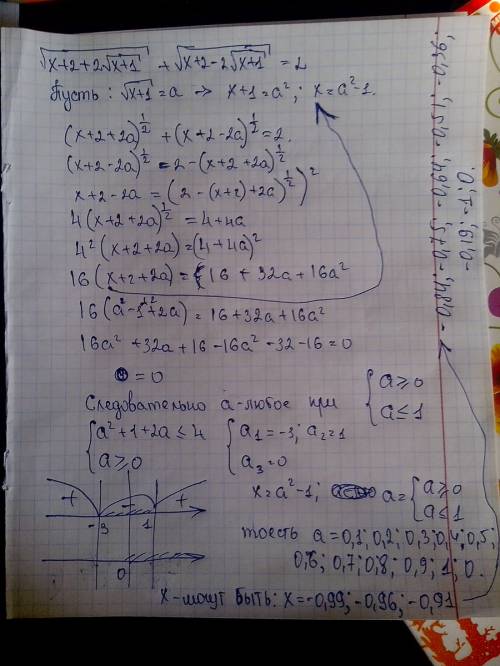 √(x+2+2√(x+1)) + √(x+2-2√(x+1)) = 2
Пусть: √(x+1) = a → x+1 = a²; x = a²-1.
(x+2+2a)^½ + (x+2-2a)^½ = 2.
(x+2-2a)^½ = 2-(x+2+2a)^½
x+2-2a = (2-(x+2)+2a)^½)²
4(x+2+2a)^½ = 4+4a
4²(x+2+2a) = (4+4a)²
16(x+2+2a) = 16+32a+16a²
16(a²-1+2+2a) = 16+32a+16a²
16a²+32a+16-16a²-32-16=0
0 = 0
Следовательно a-любое при { a ≥ 0
a ≤ 1
{ a²+1+2a ≤ 4 { a₁ = -3; a₂ = 1
a ≥ 0 a₃ = 0
x = a²-1; a = { a ≥ 0
a ≤ 1
+ +
-3 1
0
тоесть a = 0,1; 0,2; 0,3; 0,4; 0,5;
0,6; 0,7; 0,8; 0,9; 1; 0.
x-могут быть: x = -0,99; -0,96; -0,91
-0,84; -0,75; -0,64; -0,51; -0,36;
-0,19; -1; 0.